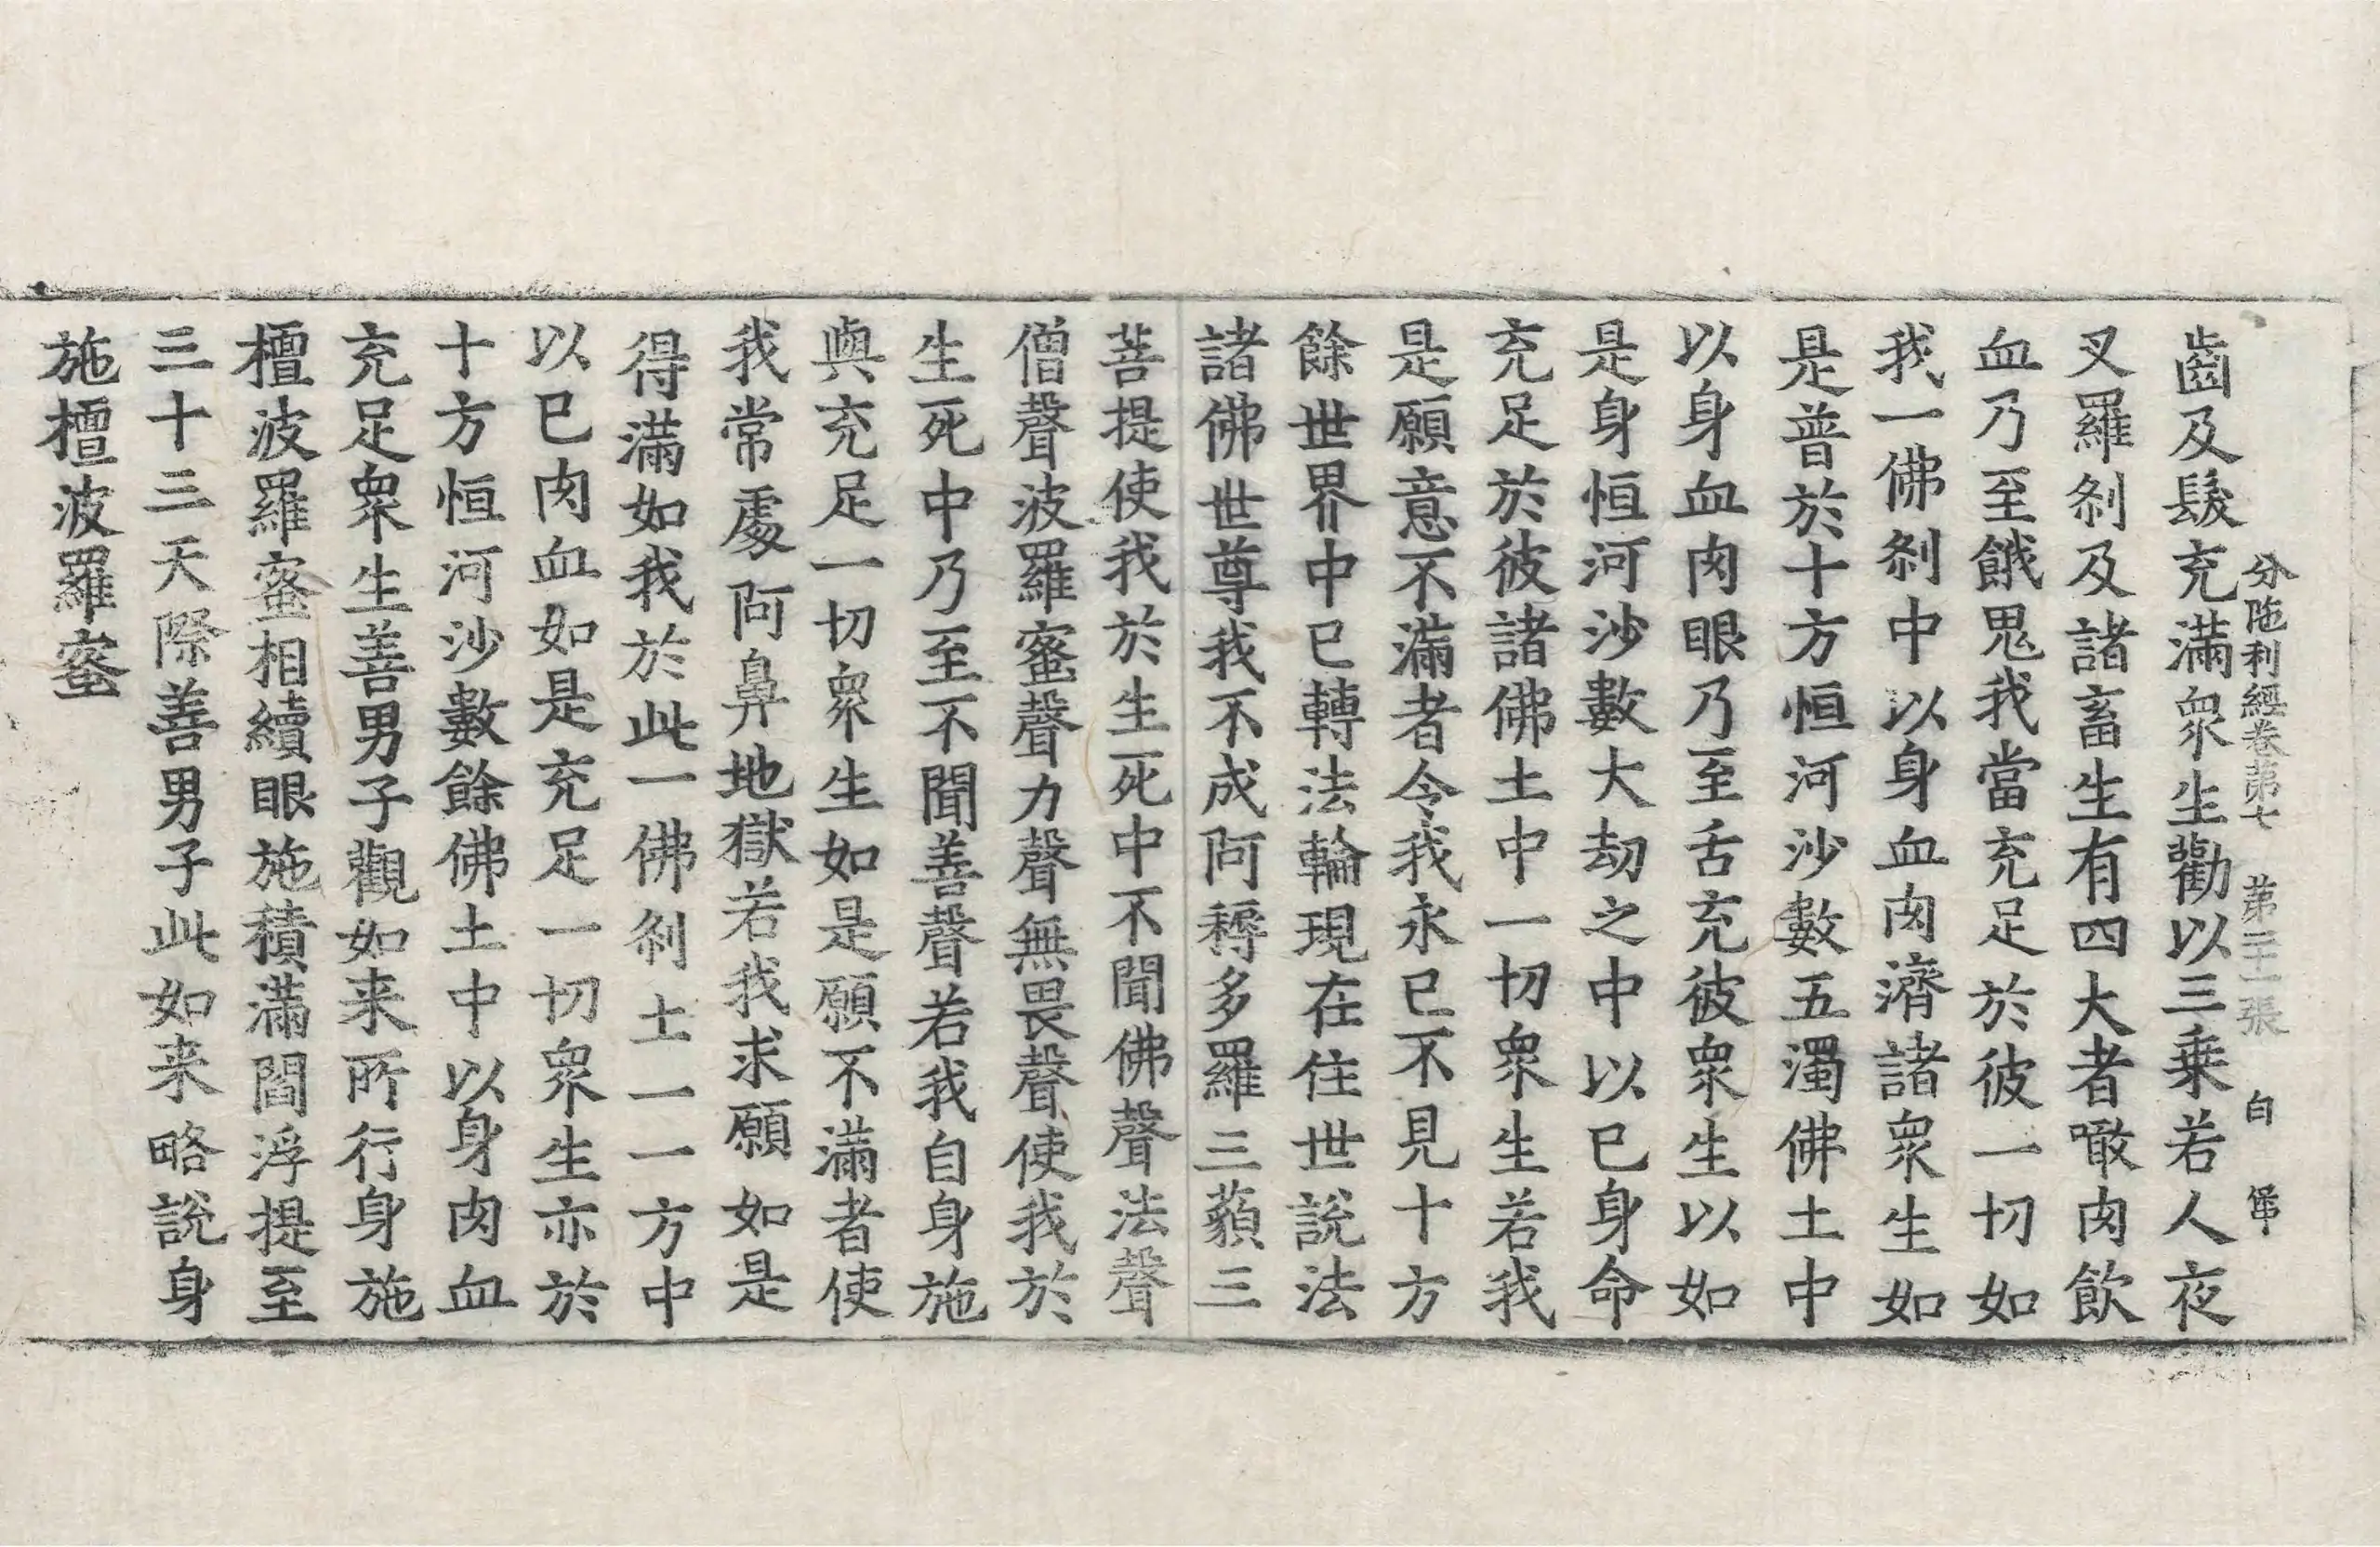 分陁利經卷第七　第二十一張　白
齒及髮充滿衆生勸以三乗若人夜
叉羅刹及諸畜生有四大者噉肉飲
血乃至餓鬼我當充足於彼一切如
我一佛刹中以身血肉濟諸衆生如
是普於十方恒河沙數五濁佛土中
以身血肉眼乃至舌充彼衆生以如
是身恒河沙數大劫之中以己身命
充足於彼諸佛土中一切衆生若我
是願意不滿者令我永已不見十方
餘世界中已轉法輪現在住世說法
諸佛世尊我不成阿耨多羅三藐三
菩提使我於生死中不聞佛聲法聲
僧聲波羅蜜聲力聲無畏聲使我於
生死中乃至不聞善聲若我自身施
與充足一切衆生如是願不滿者使
我常處阿鼻地獄若我求願如是
得滿如我於此一佛刹土一一方中
以己肉血如是充足一切衆生亦於
十方恒河沙數餘佛土中以身肉血
充足衆生善男子觀如来所行身施
檀波羅蜜相續眼施積滿閻浮提至
三十三天際善男子此如来略說身
施檀波羅蜜